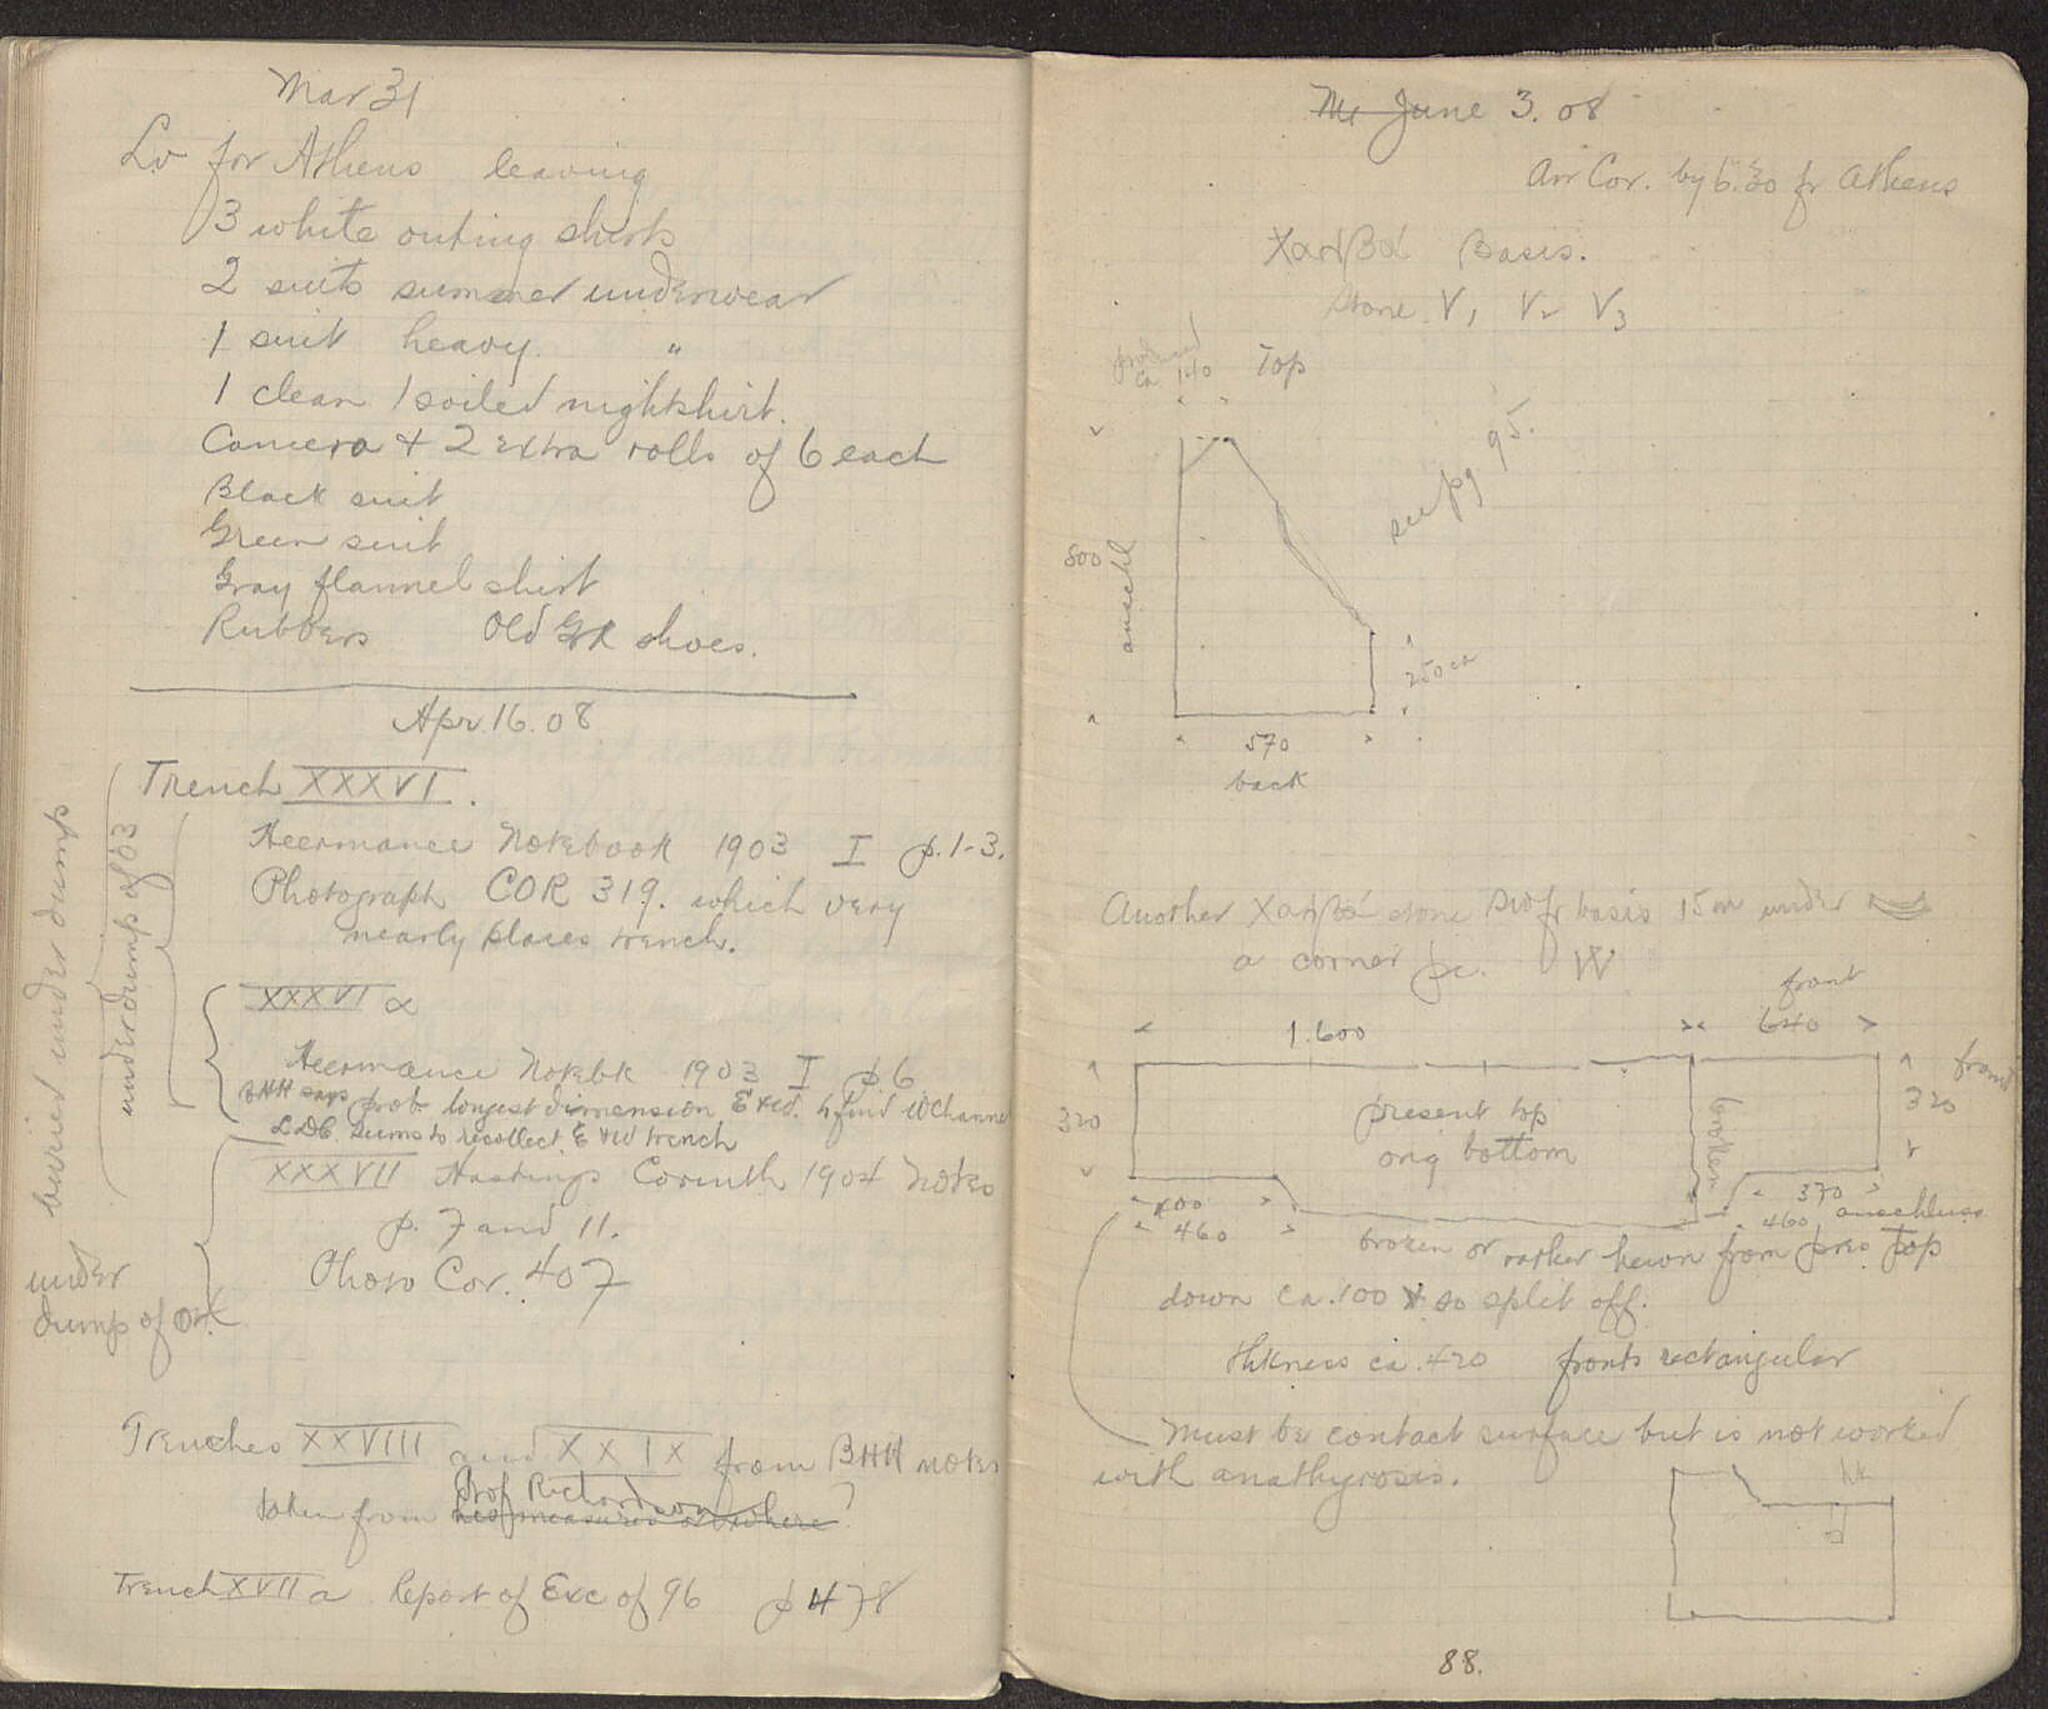 Mar 31
Lv for Athens leaving
3 white outing shirts
2 suits summer underwear
1 suit heavy "
1 clean 1 soiled nightshirt.
Camera + 2 extra rolls of 6 each
Black suit
Green suit
Gray flannel shirt
Rubbers Old GK shoes.
Apr. 16. 08
Trench XXXVI.
Heermance Notebook 1903 I p. 1-3.
Photograph COR 319. which very
nearly places trench.
XXXVI α
Heermance Notebk 1903 I p. 6
BHH says prob longest dimension E & W. to find W Channel
LDC. seems to recollect E & W trench
XXXVII Hastings Corinth 1904 Notes
p. 7 and 11.
Photo Cor. 407
buried under dump
under dump of 03
under
dump of 04
Trenches XXVIII and XXIX from BHH notes
taken from Prof Richardson
his measures
where ?
Trench XVII a Report of Exc of 96 p 478
June 3. 08
Arr Cor. by 6.30 fr Athens
Basis.
Stone V1 V2 V3
ca 140 Top
see pg 95.
800
anschl
250 ca
570
back
Another stone SW fr basis 15 m under
a corner pc. W
front
1.600 640
front
320
present top
orig bottom
broken
320
400 370 anschluss
460 460
broken or rather hewn from pres top
down ca. 100 & so split off.
thkness ca. 420 fronts rectangular
Must be contact surface but is not worked
with anathyrosis.
88.